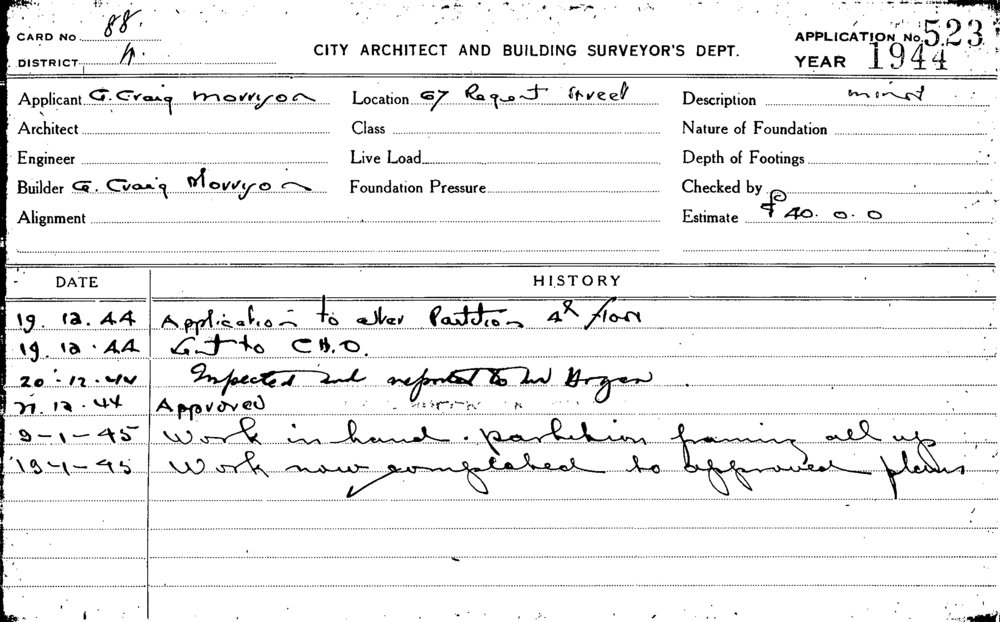 CARD No 88.
DISTRICT H.
CITY ARCHITECT AND BUILDING SURVEYOR'S DEPT.
APPLICATION No. 523
YEAR 1944
Applicant G. Craig Morrison Location 67 Regent Street Description minor
Architect Class Nature of Foundation
Engineer Live Load Depth of Footings
Builder G. Craig Morrison Foundation Pressure Checked by
Alignment Estimate £40.0.0
DATE HISTORY
19.12.44 Application to alter Partition 4th floor
19.12.44 Sent to C.H.O.
20.12.44 Inspected and reported to Mr Hogan.
21.12.44 Approved
9-1-45 Work in hand. partition framing all up
Work now completed to approved plans